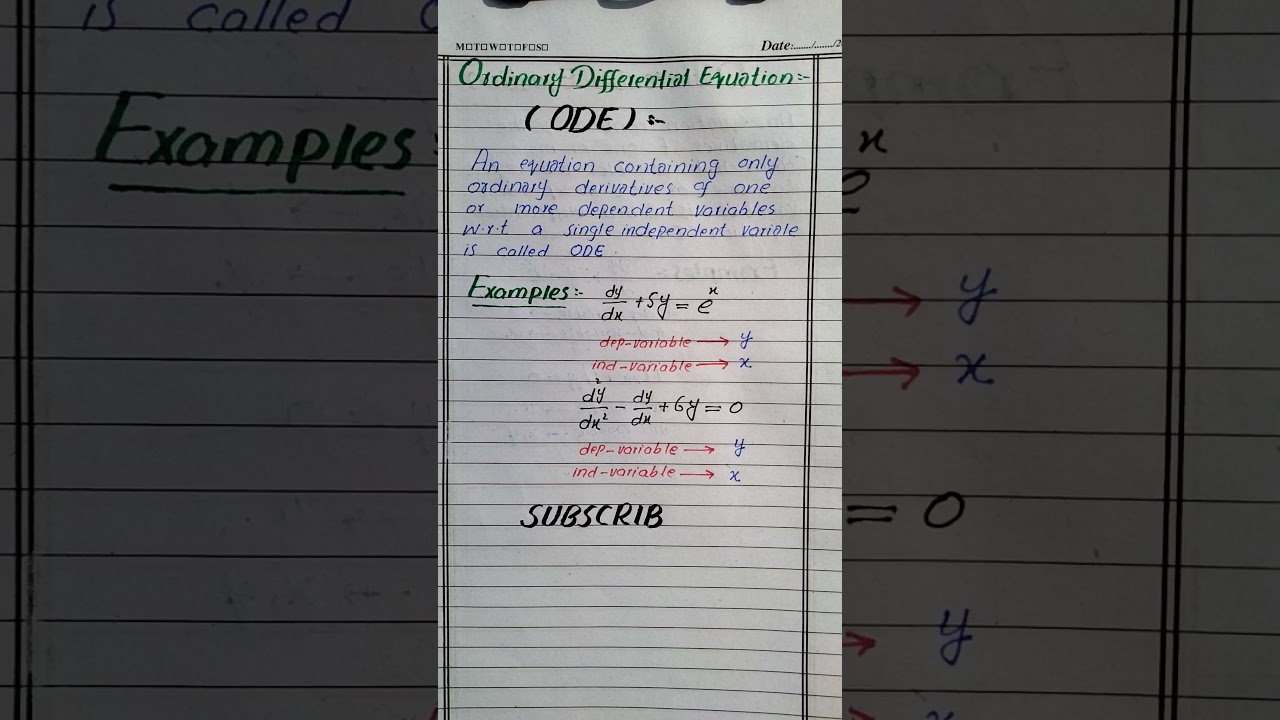 is called
Examples:
M□T□W□T□F□S□
Date:....../....../2
Ordinary Differential Equation:-
(ODE):-
An equation containing only
ordinary derivatives of one
or more dependent variables
w.r.t a single independent variale
is called ODE.
Examples:- dy/dx + 5y = e^x
dep-variable → y
ind-variable → x
d²y/dx² - dy/dx + 6y = 0
dep-variable → y
ind-variable → x
SUBSCRIB
x
→ y
→ x
= 0
→ y